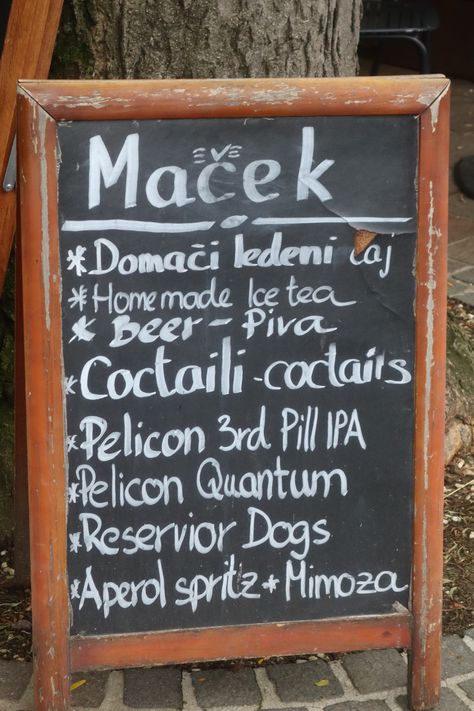 Maček
* Domači ledeni čaj
* Homemade Ice tea
* Beer - Piva
* Coctaili - coctails
* Pelicon 3rd Pill IPA
* Pelicon Quantum
* Reservior Dogs
* Aperol spritz * Mimoza